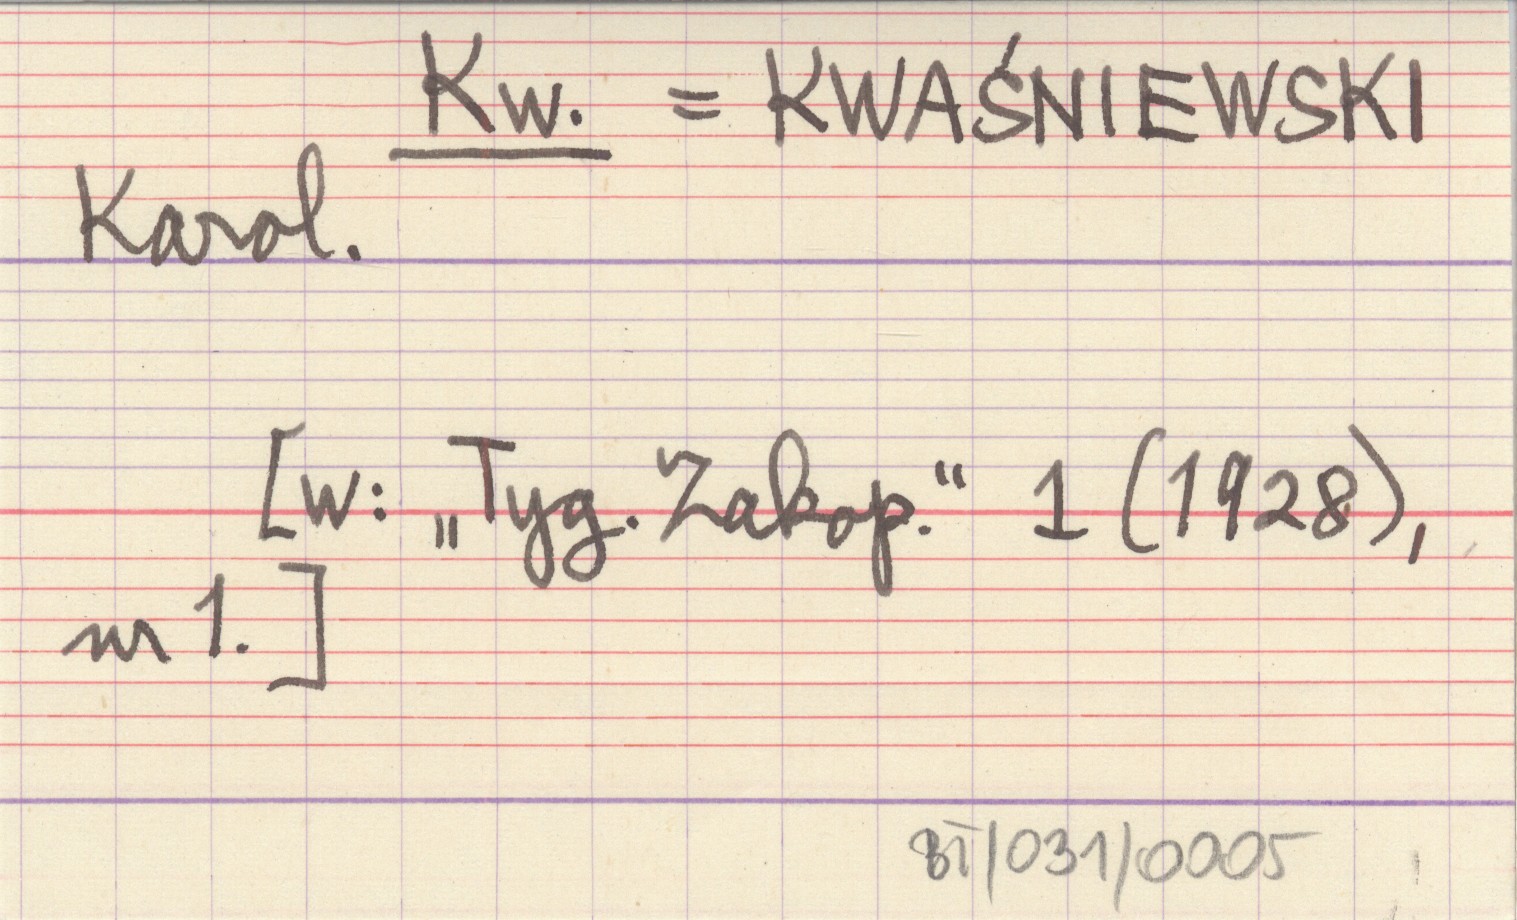 Kw. = KWAŚNIEWSKI
Karol.
[w: „Tyg. Zakop.“ 1 (1928),
nr 1.]
BT/031/0005